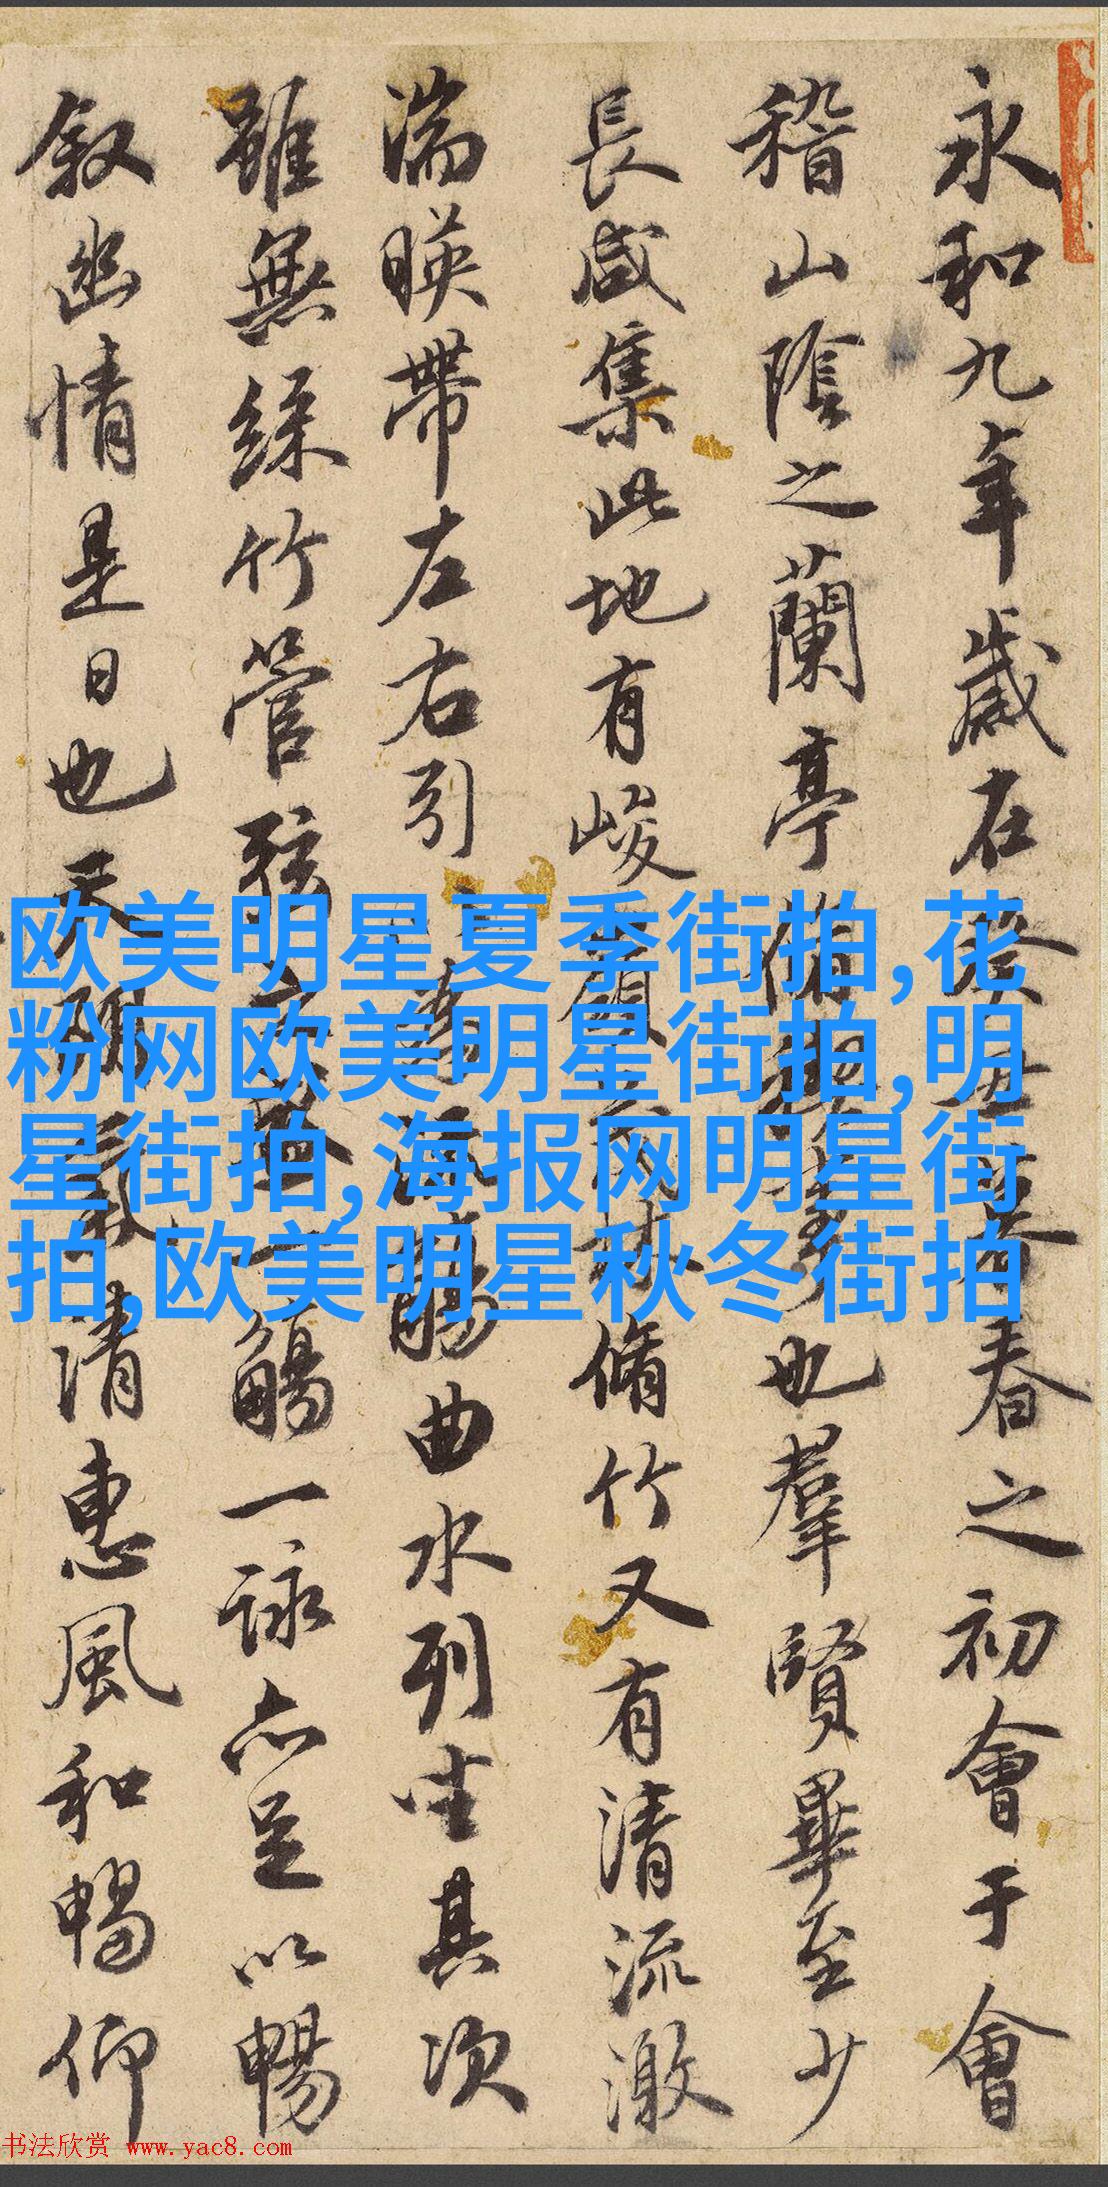 永和九年歲在癸丑暮春之初會于會
稽山陰之蘭亭脩禊事也羣賢畢至少
長咸集此地有峻領茂林脩竹又有清流激
湍暎帶左右引以為流觴曲水列坐其次
雖無絲竹管弦之盛一觴一詠亦足以暢
叙幽情是日也天朗氣清惠風和暢仰
欧美明星夏季街拍,花
粉网欧美明星街拍,明
星街拍,海报网明星街
拍,欧美明星秋冬街拍
书法欣赏 www.yac8.com